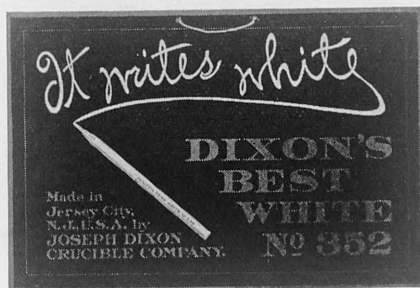 It writes white
DIXON'S
BEST
WHITE
No 352
Made in
Jersey City,
N.J., U.S.A. by
JOSEPH DIXON
CRUCIBLE COMPANY.